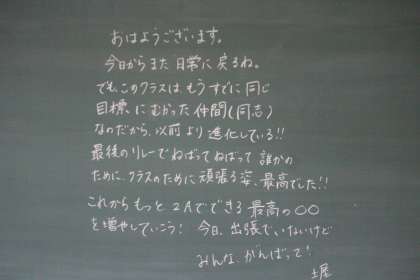 おはようございます。
今日からまた日常に戻るね。
でも、このクラスは、もうすでに同じ
目標にむかった仲間(同志)
なのだから、以前より進化している!!
最後のリレーでねばってねばって誰かの
ために、クラスのために頑張る姿、最高でした!!
これからもっと2Aでできる最高の○○
を増やしていこう! 今日、出張でいないけど
みんな、がんばって!
土屋